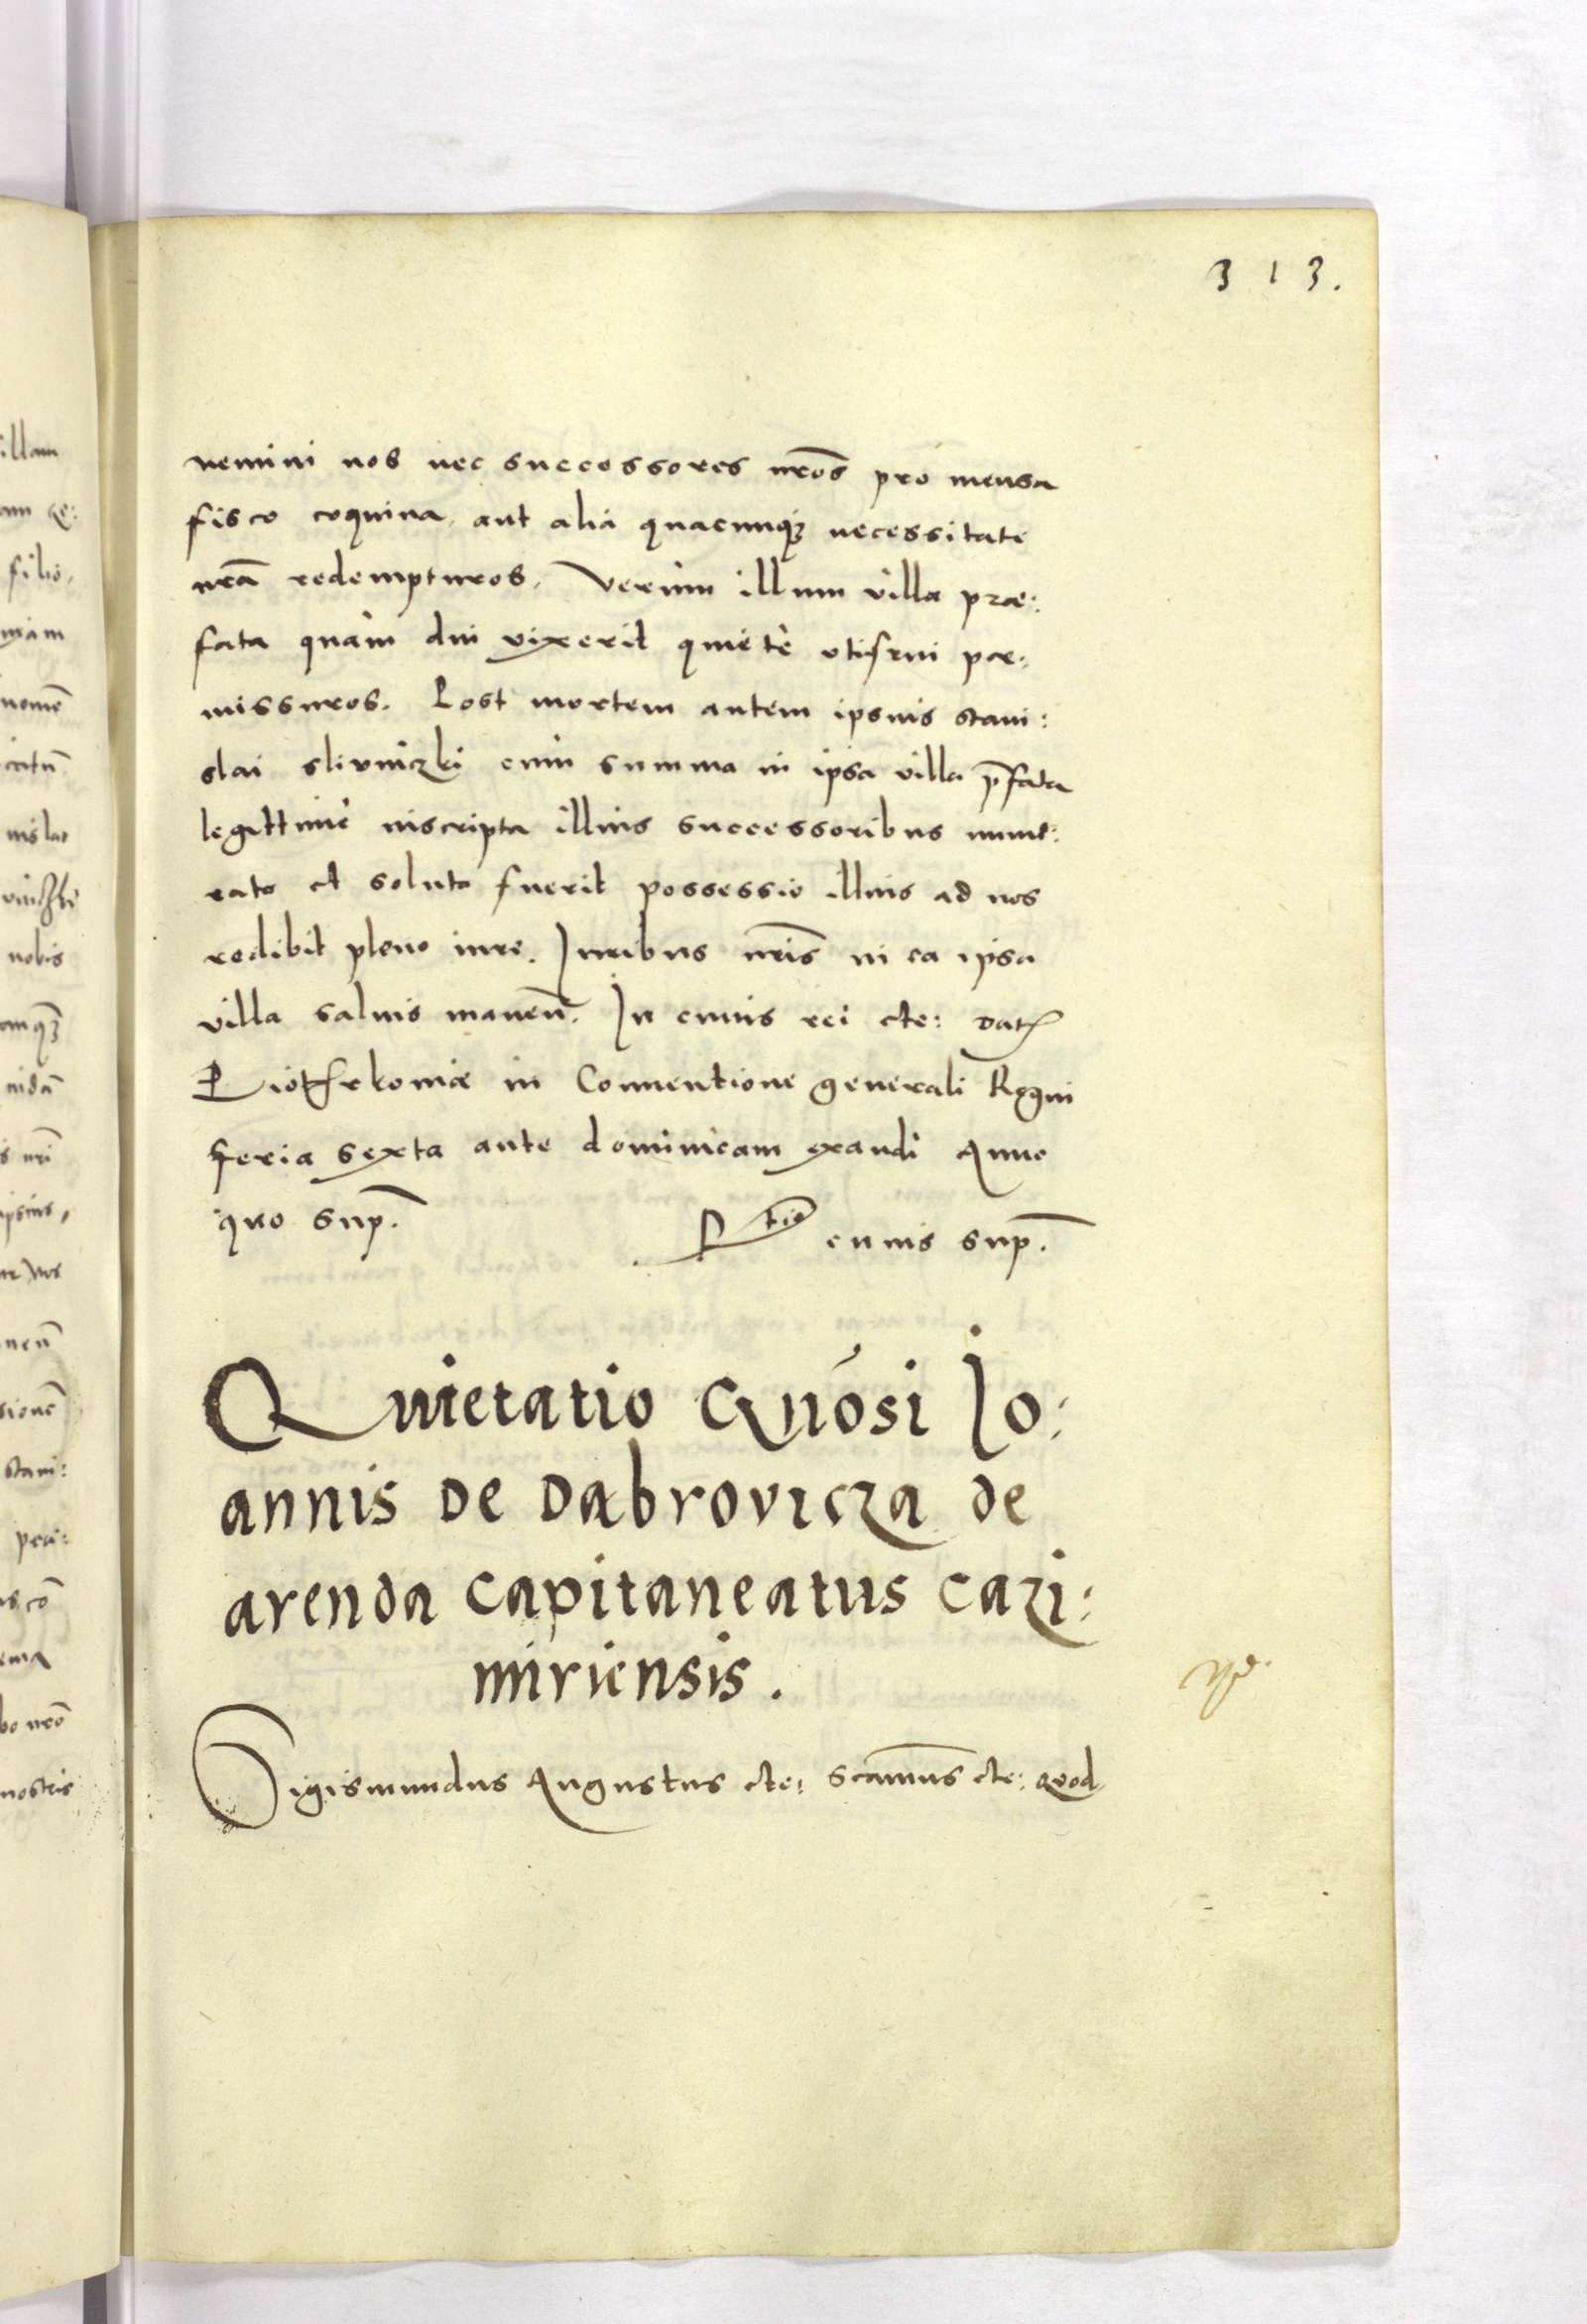 313.
nemini nos nec successores nr̃os pro mensa
fisco coquina aut alia quacunq₃ necessitate
nr̃a redempturos. Verum illum villa præ:
fata quam diu vixerit quiete utifrui per:
missuros. Post mortem autem ipsius Stani:
slai Slivniczki cum summa in ipsa villa p̃fata
legittime inscripta illius successoribus nume:
rata et soluta fuerit possessio illius ad nos
redibit pleno iure. Juribus nr̃is in ea ipsa
villa salvis manen̄. In cuius rei etc: Dat
Piotrkoviæ in Conventione generali Regni
feria sexta ante dominicam exaudi Anno
quo sup̄.
R<sup>tio</sup> cuius sup̄.
Quietatio Gn̄osi Jo:
annis de Dabrovicza de
arenda Capitaneatus Cazi:
miriensis.
Sigismundus Augustus etc: Sc̄amus etc: Quod